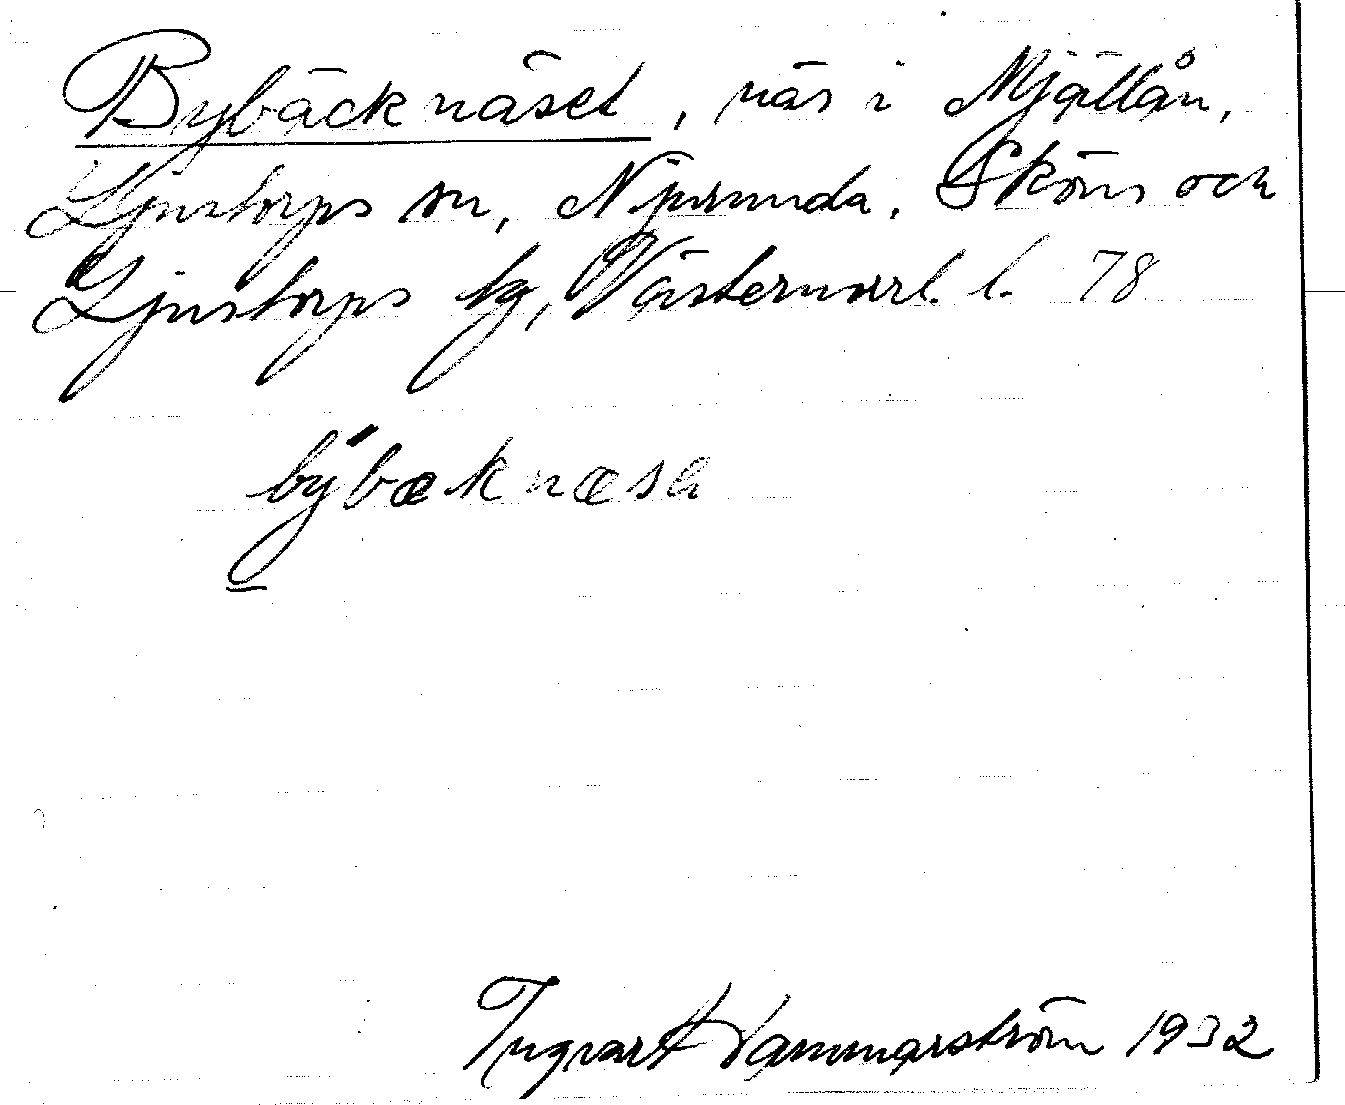 Bybäcknäset, näs i Mjällån,
Ljustorps sn, Njurunda, Sköns och
Ljustorps tg, Västernorrl. l. 78
by´bæknæsa
Ingvart Hammarström 1932